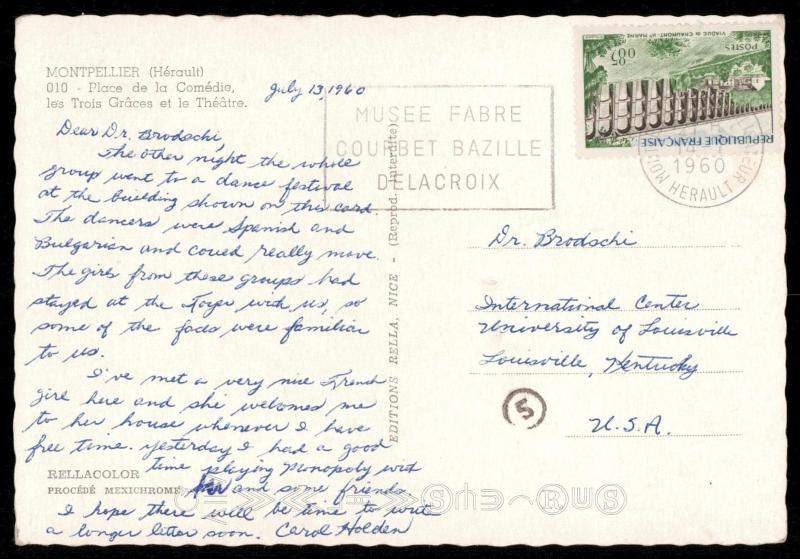 MONTPELLIER (Hérault)
010 - Place de la Comédie,
les Trois Grâces et le Théâtre.
July 13, 1960
Dear Dr. Brodschi,
The other night the whole
group went to a dance festival
at the building shown on this card.
The dancers were Spanish and
Bulgarian and coued really move.
The girls from these groups had
stayed at the Foyer with us, so
some of the faces were familiar
to us.
I've met a very nice French
girl here and she welcomes me
to her house whenever I have
free time. Yesterday I had a good
time playing Monopoly with
her and some friends.
I hope there will be time to write
a longer letter soon. Carol Holden
RELLACOLOR
PROCÉDÉ MEXICHROME
EDITIONS RELLA, NICE - (Reprod. interdite)
MUSEE FABRE
COURBET BAZILLE
DELACROIX
VIADUC DE CHAUMONT - Hte MARNE
POSTES
0,85
REPUBLIQUE FRANÇAISE
1960
HERAULT
Dr. Brodschi
International Center
University of Louisville
Louisville, Kentucky
U.S.A.
5